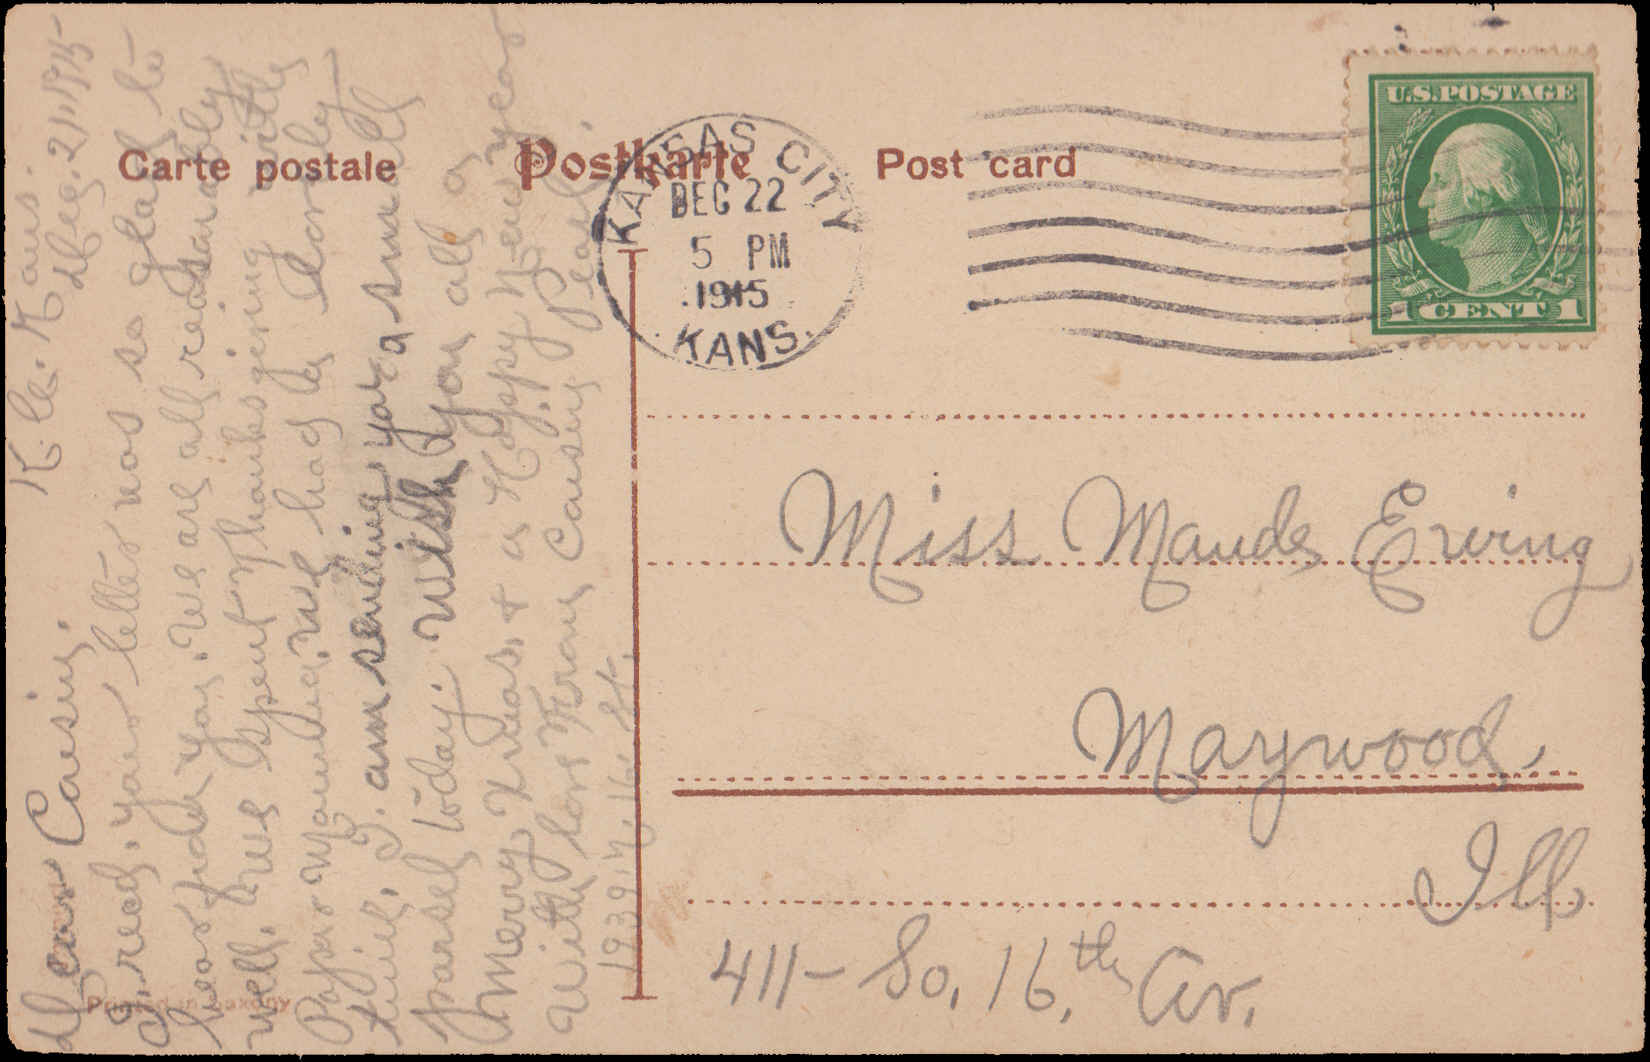 Carte postale
Postkarte
Post card
KANSAS CITY
DEC 22
5 PM
1915
KANS.
U.S. POSTAGE
1 CENT 1
K. C. Kans.
Dec. 21, 1915
Dear Cousin.
I, recd, your letter was so glad to
hear from you. we are all reasanably
well, we spent Thanksgiving with
Papa we had a lovely
time. I. am sending you a small
parsel today. wish you all a
Merry Xmas, & a Happy New year
With love from Cousin Pearl.
1939. N. 16 St.
Miss Maude Ewing
Maywood,
Ill
411- So, 16,th Av.
Printed in Saxony